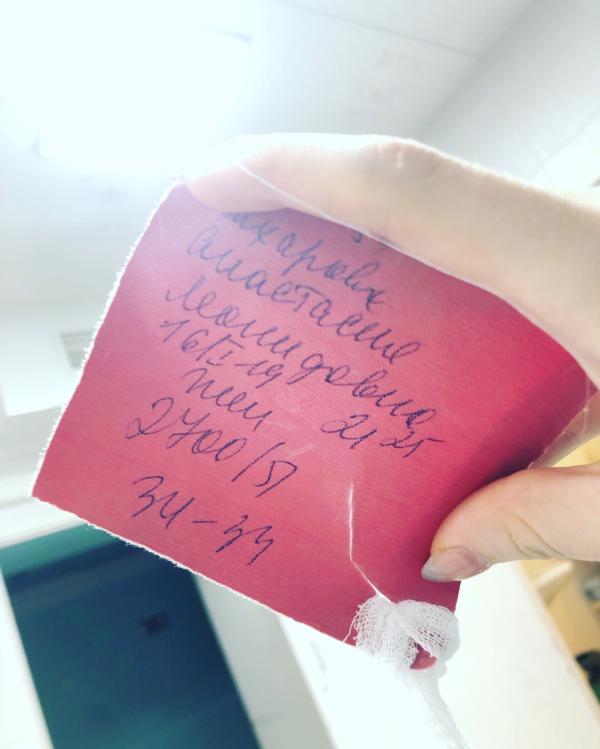 ахарова
Анастасия
Леонидовна
16/I-19
жен 21 25
2700/51
34-33